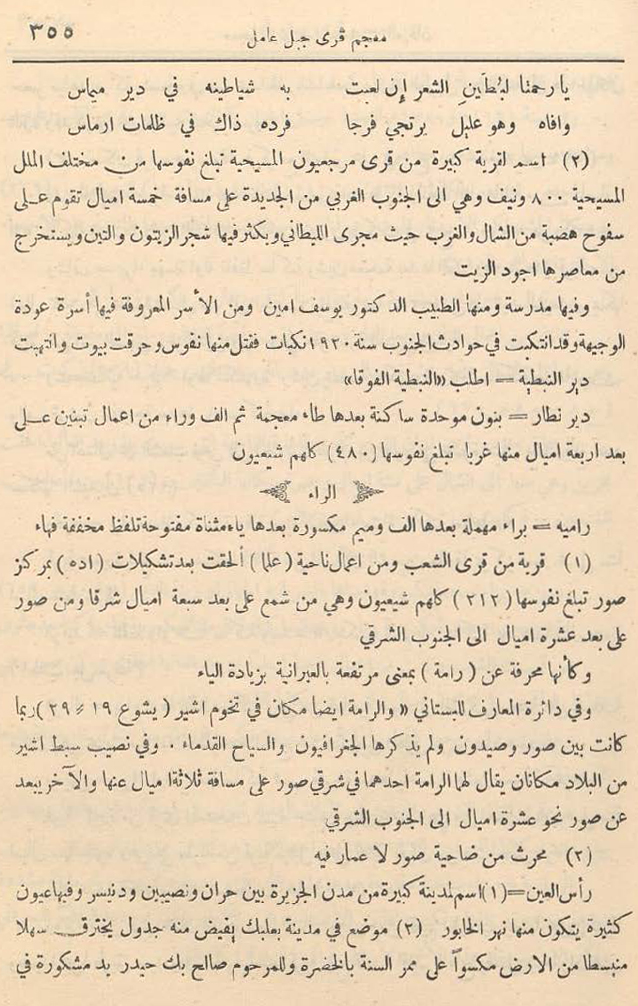 معجم قرى جبل عامل ٣٥٥
يا رحمتا لبُطَينِ الشعر إن لعبت به شياطينه في دير ميماس
وافاه وهو عليل يرتجي فرجا فرده ذاك في ظلمات ارماس
(٢) اسم لقرية كبيرة من قرى مرجعيون المسيحية تبلغ نفوسها من مختلف الملل
المسيحية ٨٠٠ ونيف وهي الى الجنوب الغربي من الجديدة على مسافة خمسة اميال تقوم على
سفوح هضبة من الشمال والغرب حيث مجرى الليطاني ويكثر فيها شجر الزيتون والتين ويستخرج
من معاصرها اجود الزيت
وفيها مدرسة ومنها الطبيب الدكتور يوسف امين ومن الأسر المعروفة فيها أسرة عودة
الوجيهة وقد انتكبت في حوادث الجنوب سنة ١٩٢٠ نكبات فقتل منها نفوس وحرقت بيوت وانتهبت
دير النبطية = اطلب «النبطية الفوقا»
دير نطار = بنون موحدة ساكنة بعدها طاء معجمة ثم الف وراء من اعمال تبنين على
بعد اربعة اميال منها غربا تبلغ نفوسها (٤٨٠) كلهم شيعيون
الراء
راميه = براء مهملة بعدها الف وميم مكسورة بعدها ياء مثناة مفتوحة تلفظ مخففة فهاء
(١) قرية من قرى الشعب ومن اعمال ناحية (علما) ألحقت بعد تشكيلات (اده) بمركز
صور تبلغ نفوسها (٢١٢) كلهم شيعيون وهي من شمع على بعد سبعة اميال شرقا ومن صور
على بعد عشرة اميال الى الجنوب الشرقي
وكأنها محرفة عن (رامة) بمعنى مرتفعة بالعبرانية بزيادة الياء
وفي دائرة المعارف للبستاني «والرامة ايضا مكان في تخوم اشير (يشوع ١٩ : ٢٩) ربما
كانت بين صور وصيدون ولم يذكرها الجغرافيون والسياح القدماء . وفي نصيب سبط اشير
من البلاد مكانان يقال لهما الرامة احدهما في شرقي صور على مسافة ثلاثة اميال عنها والآخر يبعد
عن صور نحو عشرة اميال الى الجنوب الشرقي
(٢) محرث من ضاحية صور لا عمار فيه
رأس العين = (١) اسم لمدينة كبيرة من مدن الجزيرة بين حران ونصيبين ودنيسر وفيها عيون
كثيرة يتكون منها نهر الخابور (٢) موضع في مدينة بعلبك يفيض منه جدول يخترق سهلا
منبسطا من الارض مكسواً على ممر السنة بالخضرة وللمرحوم صالح بك حيدر يد مشكورة في